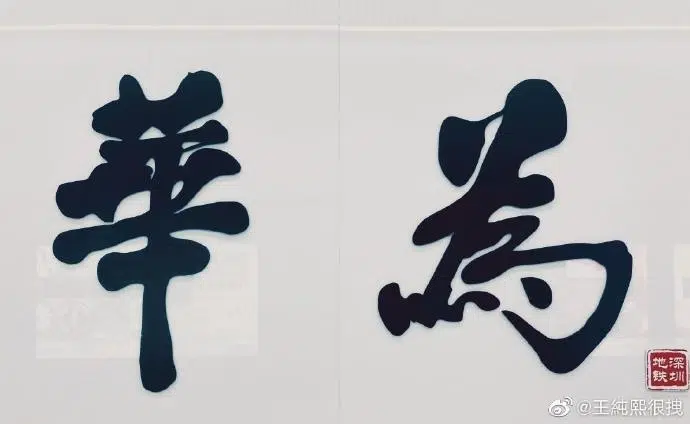 華為
深圳
地铁
@王純熙很拽